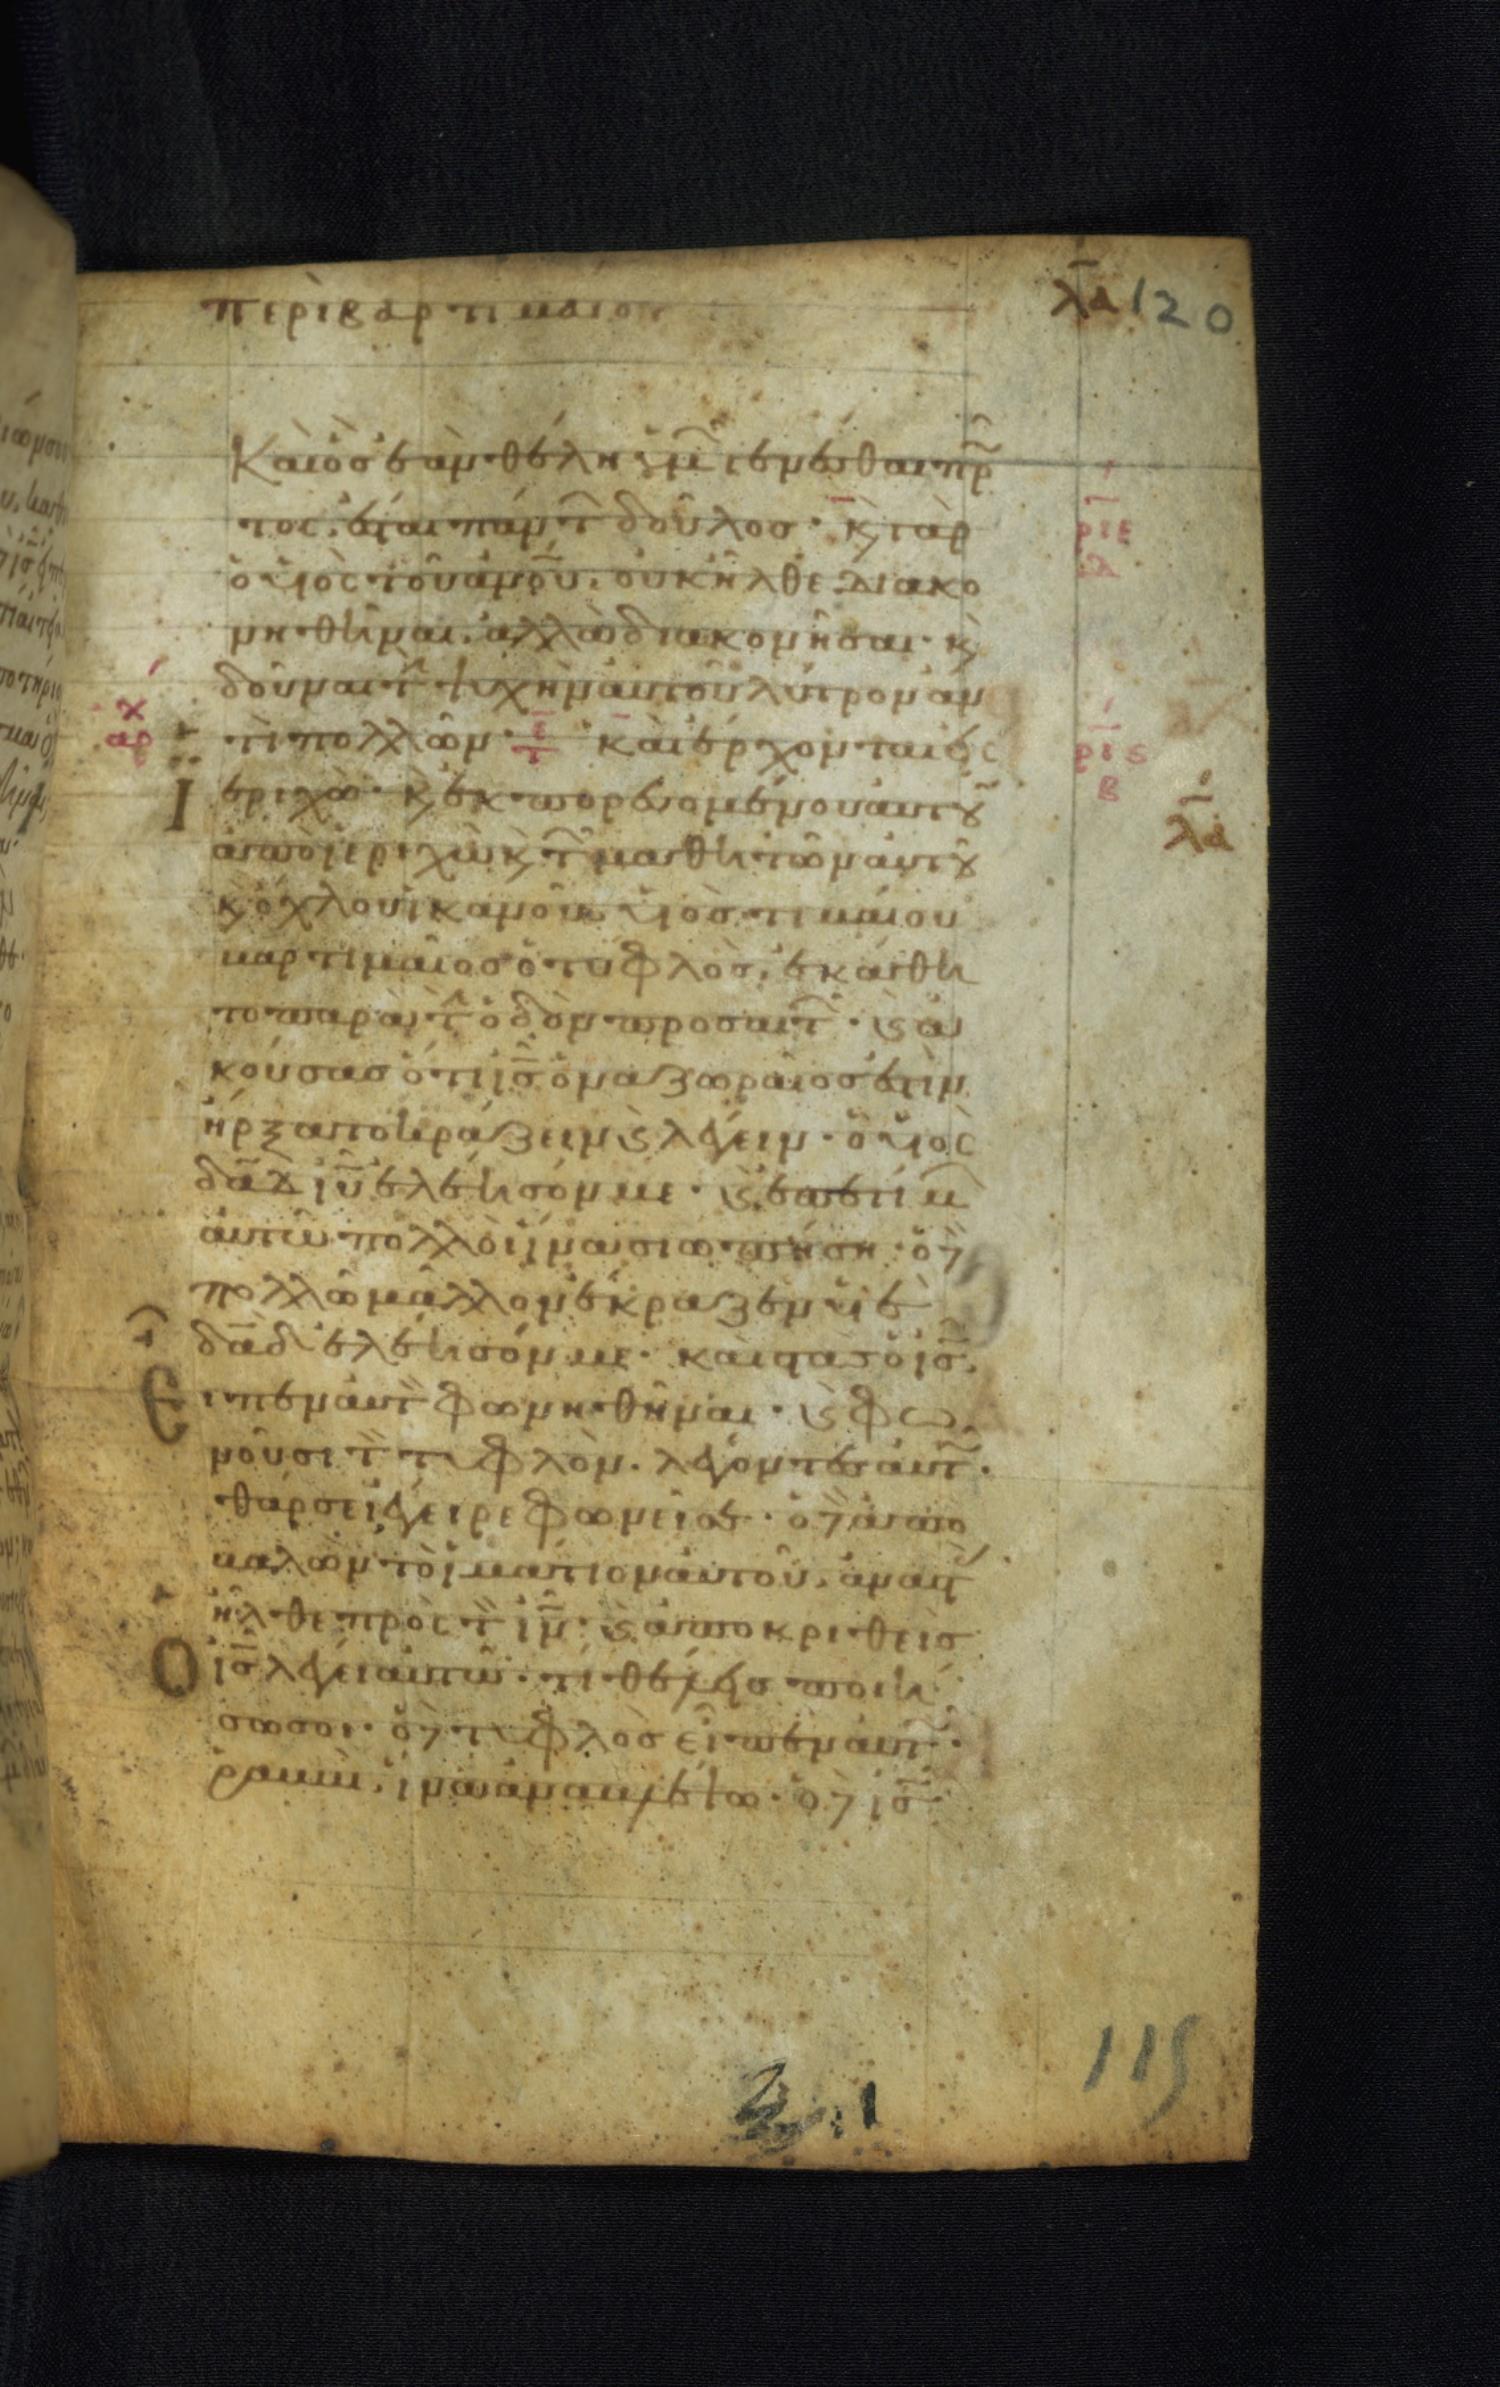 περὶ βαρτιμαίου
λα 120
Καὶ ὃς ἐὰν θέλη ὑμ γενέσθαι πρ
τος, ἔσται πάντ δοῦλος· κ γὰρ
ριε
δ
ὁ υἱὸς τοῦ ανου, οὐκ ἦλθε διακο
νηθῆναι, ἀλλὰ διακονῆσαι· κ
δοῦναι τ ψυχὴν αὐτοῦ λύτρον ἀν
αρχ
τὶ πολλῶν· καὶ ἔρχονται εἰς
ρις
β
Ἰεριχώ· κ ἐκπορευομένου αὐτοῦ
λα
ἀπὸ ἱεριχὼ κ τ μαθητῶν αὐτοῦ
κ ὄχλου ἱκανοῦ υἱὸς τιμαίου
βαρτιμαῖος ὁ τυφλὸς, ἐκάθη
το παρὰ τ ὁδὸν προσαιτ· κ ἀ
κούσας ὅτι ις ὁ ναζωραῖος ἐστὶν
ἤρξατο κράζειν κ λέγειν· ὁ υἱὸς
δαδ ιυ ἐλέησόν με· κ ἐπετίμ
αὐτῶ πολλοὶ ἵνα σιωπήση· ὁ δὲ
πολλῶ μᾶλλον ἔκραζεν υἱὲ
δαδ ἐλέησόν με· καὶ στὰς ὁ ις,
Εἶπεν αὐτ φωνηθῆναι· κ φω
νοῦσι τ τυφλὸν. λέγοντες αὐτ·
θάρσει ἔγειρε φωνεῖ σε· ὁ δὲ ἀπο
βαλὼν τὸ ἱμάτιον αὐτοῦ, ἀναστ
ἦλθε πρὸς τ ιν· κ ἀποκριθεὶς
Ὁ ις λέγει αὐτῶ· τί θέλεις ποιή
σω σοι· ὁ δὲ τυφλὸς εἶπεν αὐτ·
ραββι, ἵνα ἀναβλέψω· ὁ δὲ ις
115